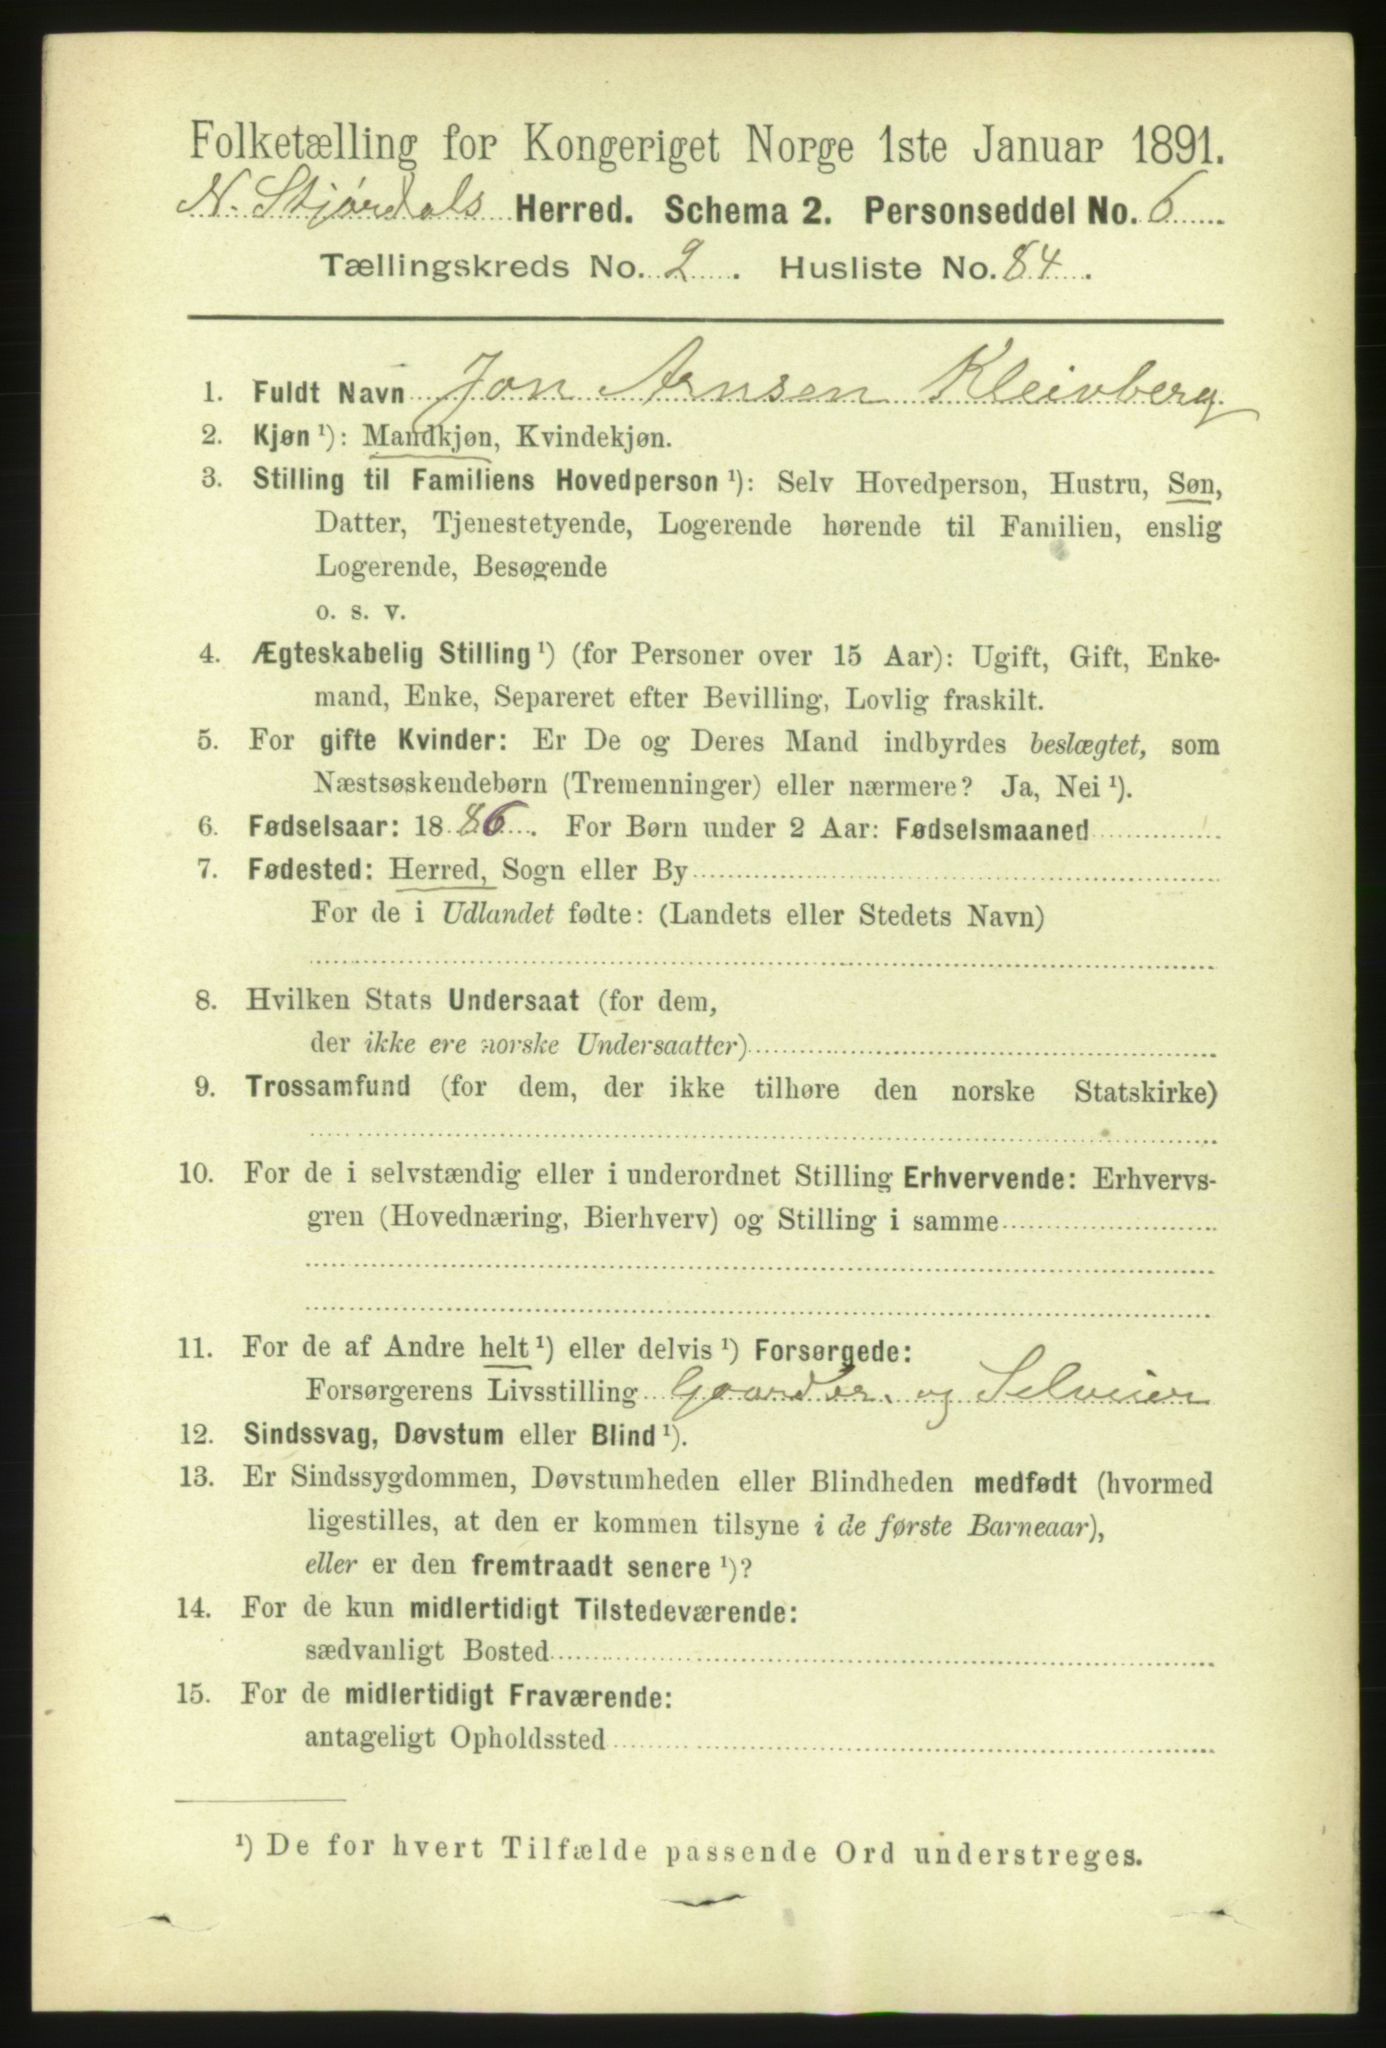 Folketælling for Kongeriget Norge 1ste Januar 1891.
N. Stjørdals Herred. Schema 2. Personseddel No. 6
Tællingskreds No. 2. Husliste No. 84.
1. Fuldt Navn Jon Arnsen Kleivberg
2. Kjøn ¹): Mandkjøn, Kvindekjøn.
3. Stilling til Familiens Hovedperson ¹): Selv Hovedperson, Hustru, Søn,
Datter, Tjenestetyende, Logerende hørende til Familien, enslig
Logerende, Besøgende
o. s. v.
4. Ægteskabelig Stilling ¹) (for Personer over 15 Aar): Ugift, Gift, Enke-
mand, Enke, Separeret efter Bevilling, Lovlig fraskilt.
5. For gifte Kvinder: Er De og Deres Mand indbyrdes beslægtet, som
Næstsøskendebørn (Tremenninger) eller nærmere? Ja, Nei ¹).
6. Fødselsaar: 1886. For Børn under 2 Aar: Fødselsmaaned
7. Fødested: Herred, Sogn eller By
For de i Udlandet fødte: (Landets eller Stedets Navn)
8. Hvilken Stats Undersaat (for dem,
der ikke ere norske Undersaatter)
9. Trossamfund (for dem, der ikke tilhøre den norske Statskirke)
10. For de i selvstændig eller i underordnet Stilling Erhvervende: Erhvervs-
gren (Hovednæring, Bierhverv) og Stilling i samme
11. For de af Andre helt ¹) eller delvis ¹) Forsørgede:
Forsørgerens Livsstilling Gaardbr. og Selveier
12. Sindssvag, Døvstum eller Blind ¹).
13. Er Sindssygdommen, Døvstumheden eller Blindheden medfødt (hvormed
ligestilles, at den er kommen tilsyne i de første Barneaar),
eller er den fremtraadt senere ¹)?
14. For de kun midlertidigt Tilstedeværende:
sædvanligt Bosted
15. For de midlertidigt Fraværende:
antageligt Opholdssted
¹) De for hvert Tilfælde passende Ord understreges.